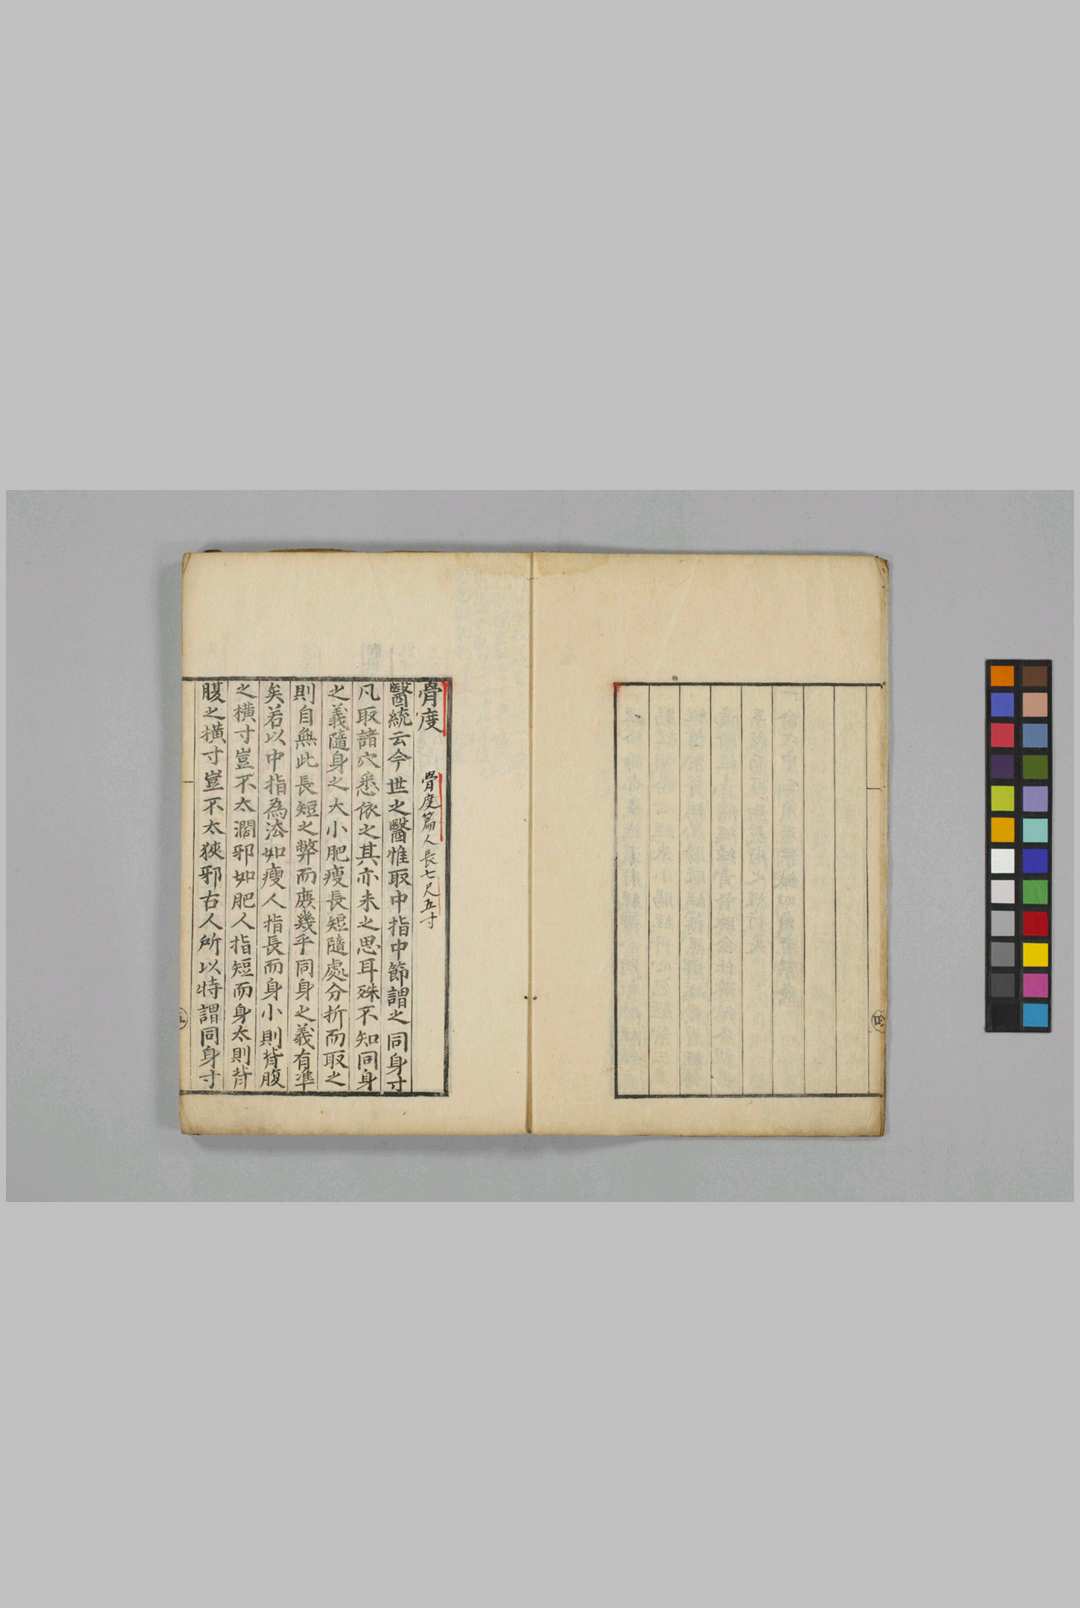 骨度　骨度篇人長七尺五寸
醫統云今世之醫惟取中指中節謂之同身寸
凡取諸穴悉依之其亦未之思耳殊不知同身
之義隨身之大小肥瘦長短隨處分折而取之
則自無此長短之弊而庶幾乎同身之義有準
矣若以中指為法如瘦人指長而身小則背腹
之橫寸豈不太濶邪如肥人指短而身太則背
腹之橫寸豈不太狹邪古人所以特謂同身寸